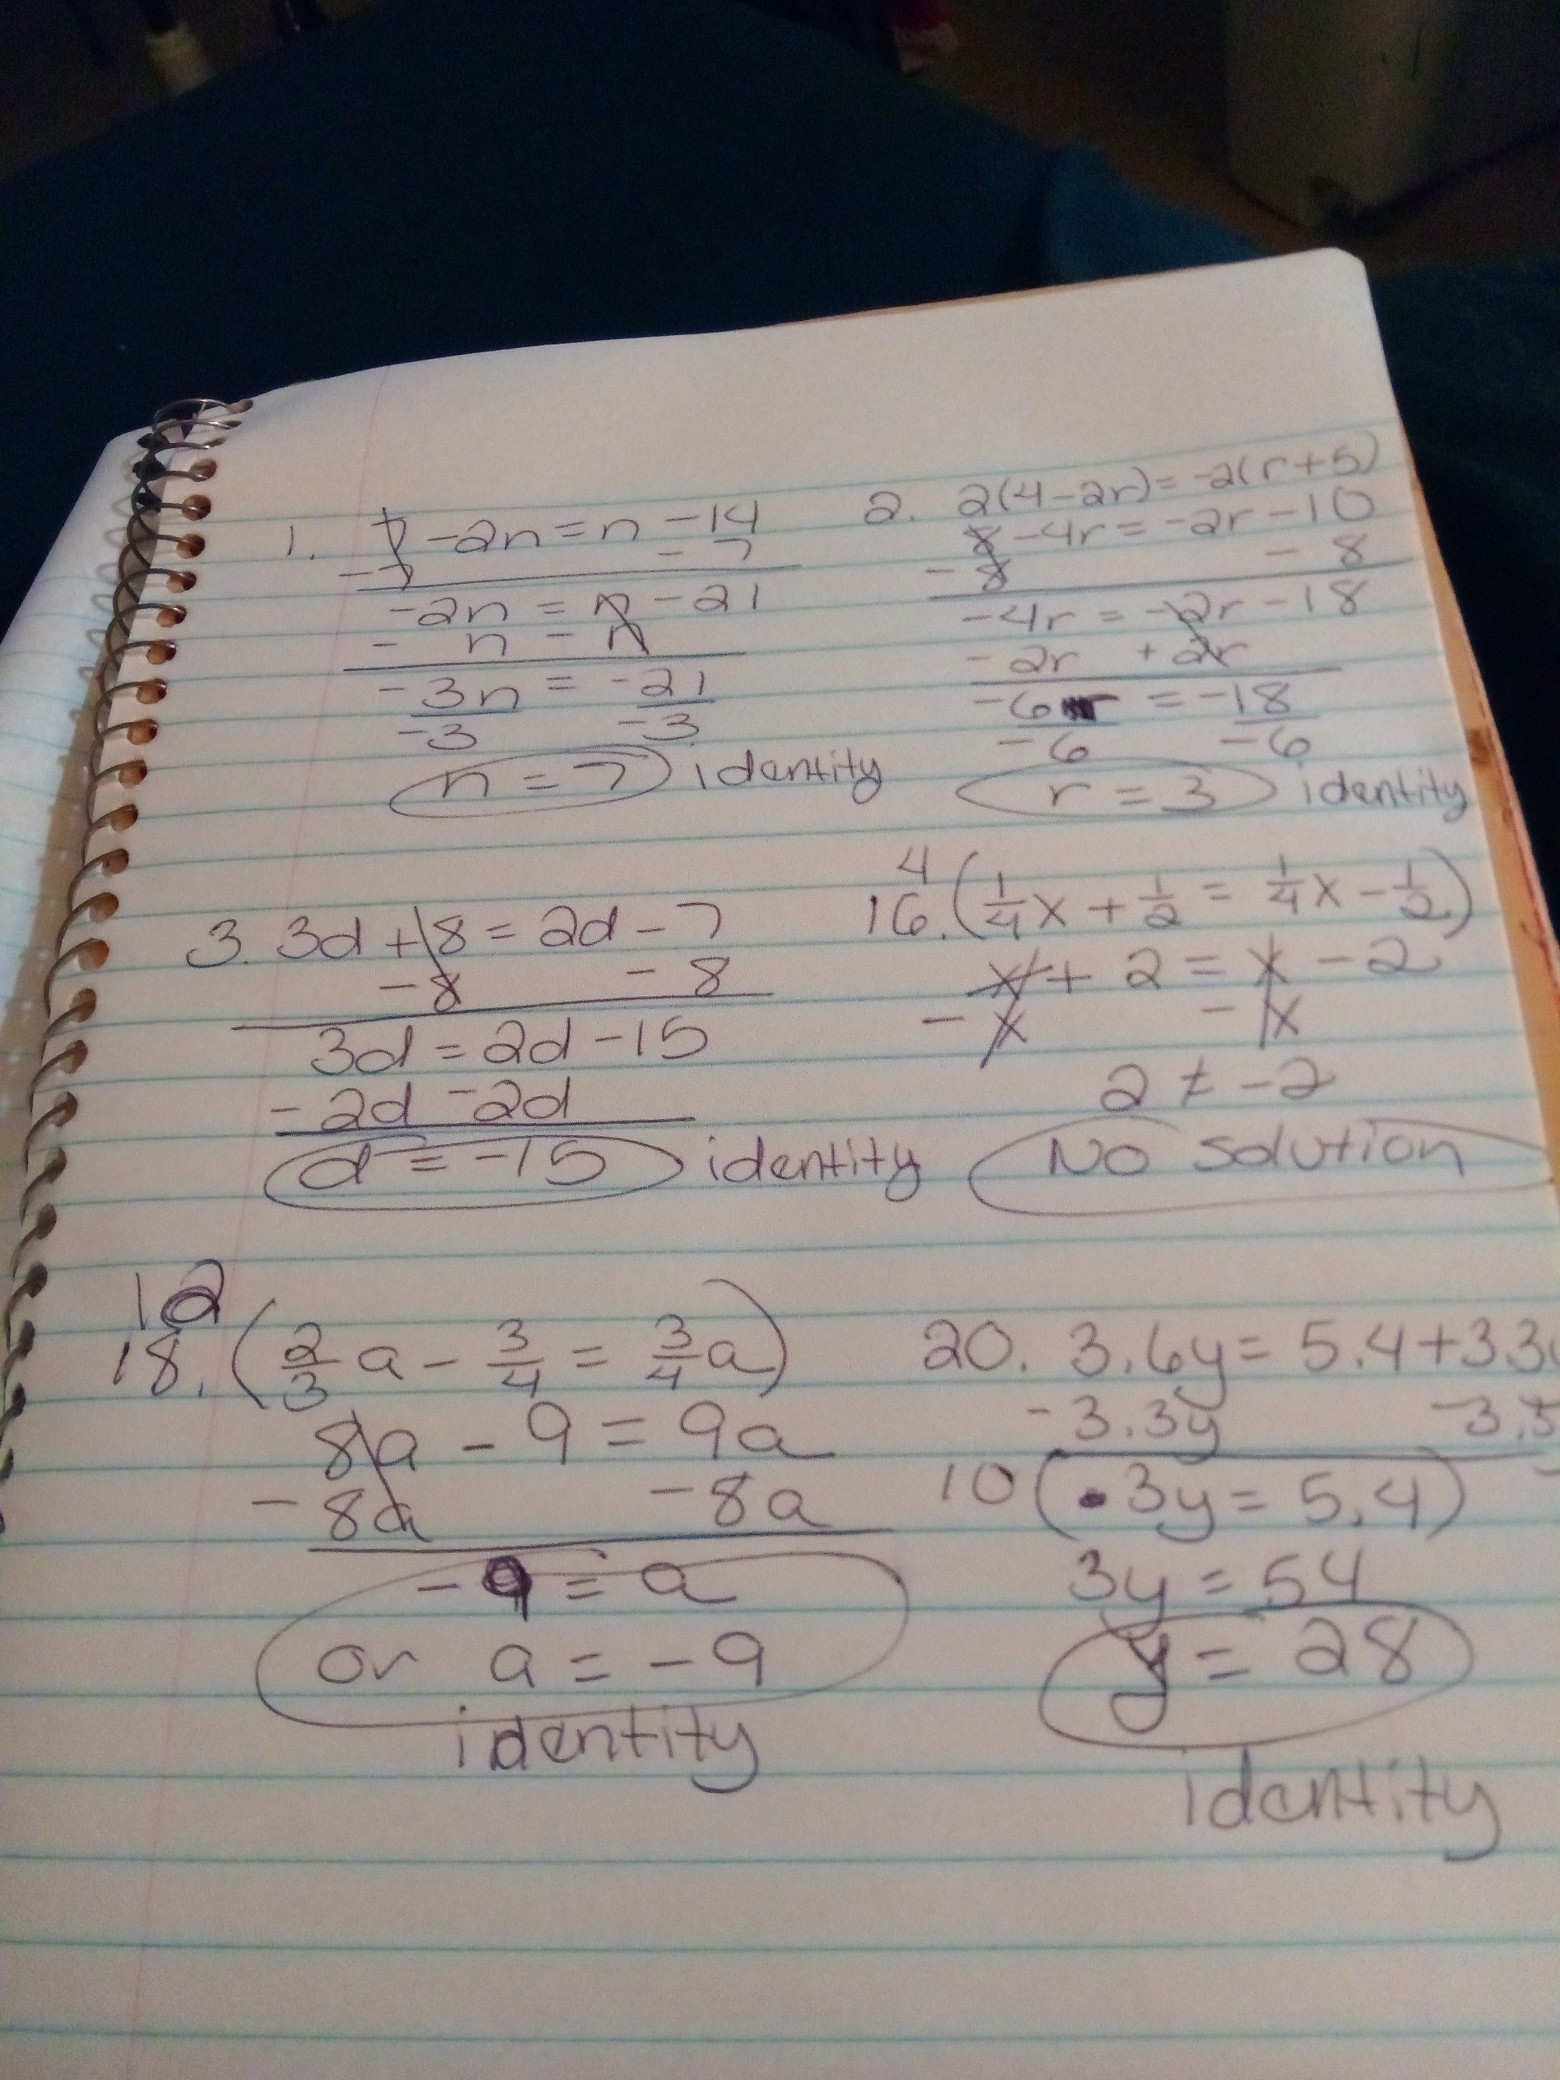 1. 7 - 2n = n - 14
- 7 - 7
- 2n = n - 21
- n - n
- 3n = - 21
- 3 - 3
n = 7 identity
2. 2(4 - 2r) = -2(r + 5)
8 - 4r = - 2r - 10
- 8 - 8
- 4r = - 2r - 18
- 2r + 2r
- 6r = - 18
- 6 - 6
r = 3 identity
3. 3d + 8 = 2d - 7
- 8 - 8
3d = 2d - 15
- 2d - 2d
d = - 15 identity
4
16. (1/4 x + 1/2 = 1/4 x - 1/2)
x + 2 = x - 2
- x - x
2 ≠ - 2
No solution
12
18. (2/3 a - 3/4 = 3/4 a)
8a - 9 = 9a
- 8a - 8a
- 9 = a
or a = - 9
identity
20. 3.6y = 5.4 + 3.3
- 3.3y - 3.3
10 (.3y = 5.4)
3y = 54
y = 28
identity